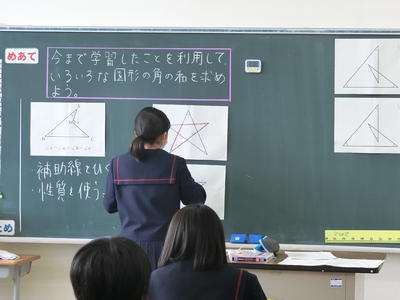 めあて
今まで学習したことを利用して、
いろいろな図形の角の和を求め
よう。
補助線をひく
・性質を使う
とめ